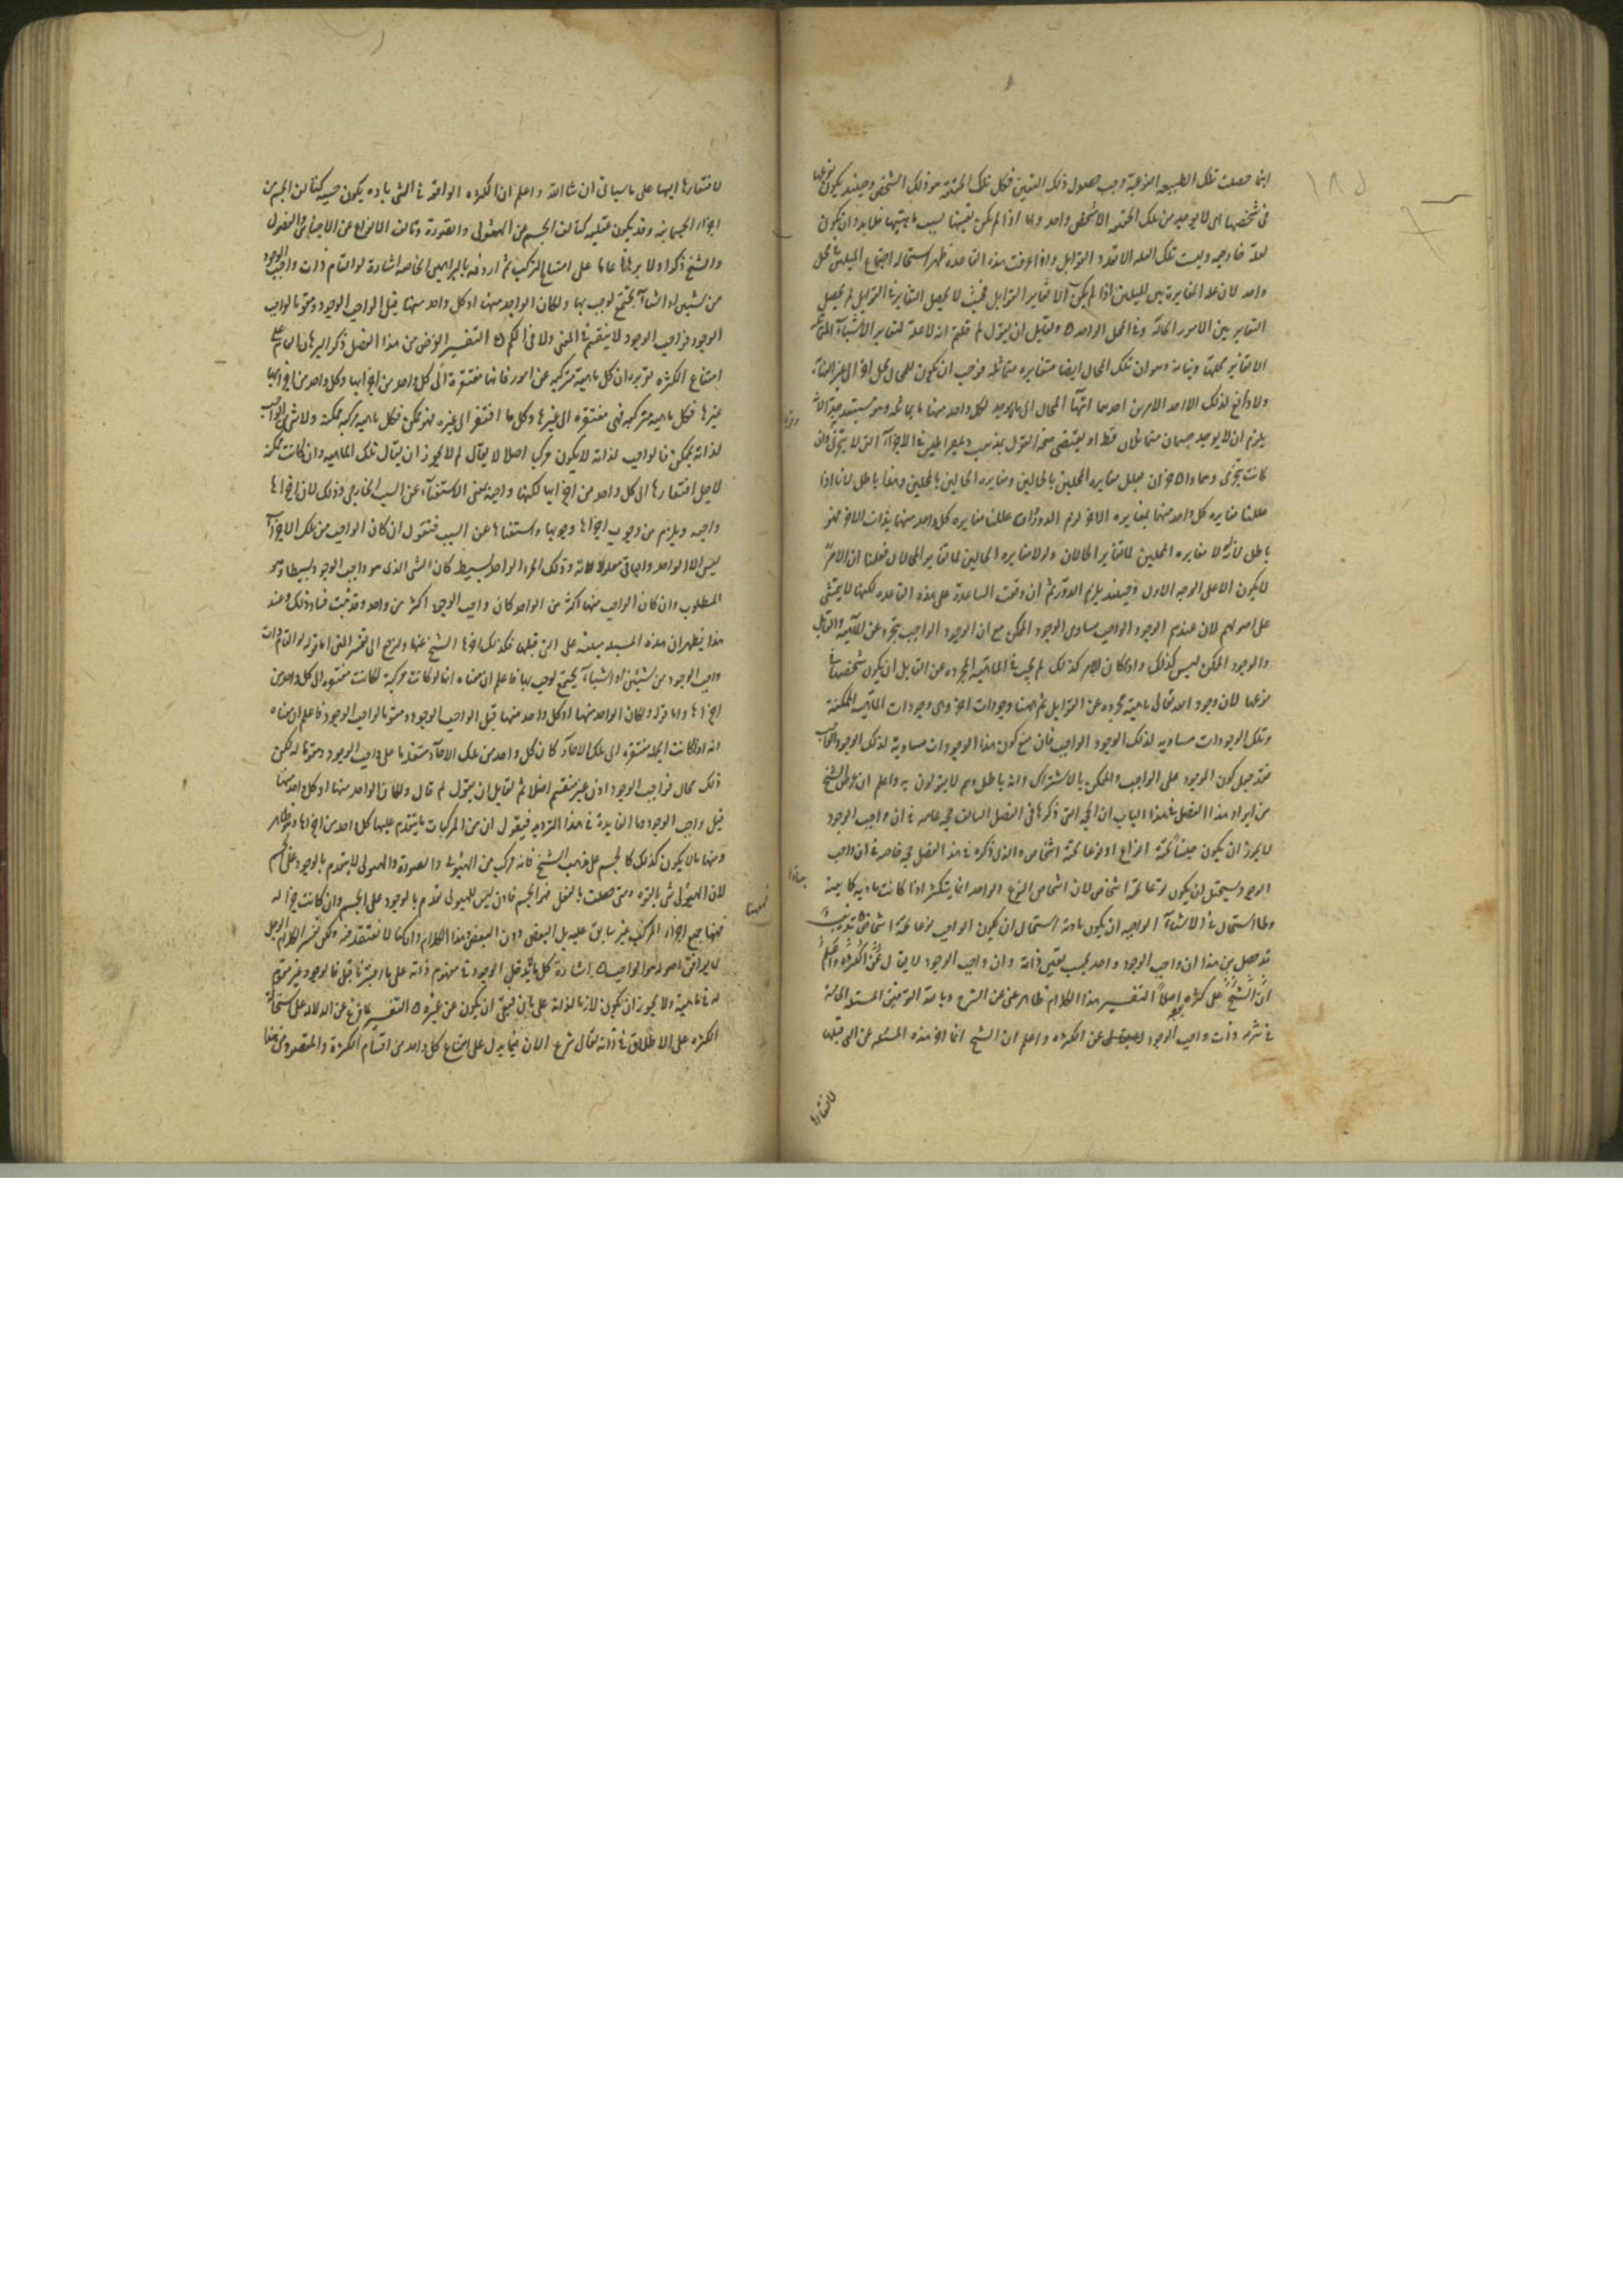 اينما حصلت تلك الطبيعه النوعية وجب حصول ذلك التعين فكل تلك الحقيقة هو ذلك الشخص وحينئذ يكون نوعها
فى شخصها اى لا يوجد من تلك الحقيقه الا شخص واحد واما اذا لم يكن تعينها لسبب ماهيتها فلا بد وان يكون
لعلة خارجيه وليست تلك العله الا تعدد القوابل واذا عرفت هذه القاعده ظهر استحاله اجتماع المثلين فى محل
واحد لان علة المغايرة بين المثلين اذا لم يكن الا تغاير القوابل فحيث لا يحصل التغاير فى القوابل لم يحصل
التغاير بين الامور الحالة فى المحل الواحد ولقايل ان يقول لم قلتم انه لا علة لتغاير الاشياء المتماثلة
الا تغاير محلها وبيانه وهو ان تلك المحال ايضا متغايره متماثله فوجب ان يكون للمحال محل اخر الى غير النهاية
ولا دافع لذلك الا احد الامرين احدهما انتهاء المحال الى ما لا يوجد لكل واحد منها ما يماثله وهو مستبعد جدا لانه
يلزم ان لا يوجد جسمان متماثلان قط او يقتضى صحة القول بمذهب ذيمقراطيس فى الاجزاء التى لا يتجزى وان
كانت تجزى وهما والاخر ان يعلل مغايره المحلين بالحالين ومغايره الحالين بالمحلين وهذا باطل لانا اذا
عللنا مغايره كل واحد منهما بمغايره الاخر لزم الدور وان عللنا مغايره كل واحد منهما بذات الاخر فهو
باطل لانه لا مغايره المحلين لما تغاير الحالان ولولا مغايره الحالين لما تغاير المحلان فعلمنا ان الامر
لا يكون الا على الوجه الاول وحينئذ يلزم الدور ثم ان وقعت المساعدة على هذه القاعده لكنها لا يتمشى
على اصولهم لان عندهم الوجود الواجب يساوى الوجود الممكن مع ان الوجود الواجب مجرد عن الماهية والقابل
والوجود الممكن ليس كذلك واذا كان الامر كذلك لم يجب فى الماهيه المجرده عن القابل ان يكون شخصها فى
نوعها لان وجود الله تعالى ماهية مجرده عن القوابل ثم لهنا وجودات اخر وهى وجودات الماهيه الممكنة
وتلك الوجودات مساويه لذلك الوجود الواجب فان منع كون هذا الوجودات مساوية لذلك الوجود الواجب
فقد جعل كون الوجود على الواجب والممكن بالاشتراك وانه باطل وهم لا يقولون به واعلم ان غرض الشيخ
من ايراد هذا الفصل فى هذا الباب ان الحجه التى ذكرها فى الفصل السالف حجة عامه فى ان واجب الوجود
لا يجوز ان يكون جنسا تحته انواع او نوعا تحته اشخاص والذى ذكره فى هذا الفصل حجة خاصه فى ان واجب
الوجود يستحيل ان يكون نوعا تحته اشخاص لان اشخاص النوع الواحد انما يتكثر اذا كانت ماديه كاينه
ولما استحال فى الاشياء الواجبه ان يكون ماديه استحال ان يكون الواجب نوعا تحته اشخاص تذنيب
قد حصل من هذا ان واجب الوجود واحد بحسب تعين ذاته وان واجب الوجود لا يقال
على كثره اصلا التفسير هذا الكلام ظاهر غنى عن الشرح وبالله التوفيق المسئلة الثالثة
فى تنزيه ذات واجب الوجود عن الكثره واعلم ان الشيخ انما اخر هذه المسئله عن التى قبلها
لافتقارها
لافتقارها اليها على ما سياتى ان شاء الله واعلم ان الكثره الواقعة فى الشى ماده يكون حسيه كتالف الجسم من
اجزاء الجسمانيه وقد يكون عقليه كتالف الجسم من الهيولى والصورة وتالف الانواع عن الاجناس والفصول
والشيخ ذكر اولا برهانا عاما على امتناع التركيب ثم اردفه بالبراهين الخاصه اشارة لو التام ذات واجب الوجود
من شيئين او اشياء يجتمع لوجب بها ولكان الواحد منها او كل واحد منها قبل الواجب الوجود ومقوما لواجب
الوجود فواجب الوجود لا ينقسم فى المعنى ولا فى الكم التفسير الغرض من هذا الفصل ذكر البرهان العام على
امتناع الكثره تقريره ان كل ماهية مركبه عن امور فانها مفتقرة الى كل واحد من اجزايها وكل واحد من اجزايها
غيرها فكل ماهيه مركبه فهى مفتقره الى غيرها وكل ما افتقر الى غيره فهو ممكن فكل ماهيه مركبه ممكنه ولا شى من الواجب
لذاته بممكن فالواجب لذاته لا يكون مركبا اصلا لا يقال لم لا يجوز ان يقال تلك الماهيه وان كانت ممكنة
لاجل افتقارها الى كل واحد من اجزايها لكنها واجبه بمعنى الاستغناء عن السبب الخارجى وذلك لان اجزاها
واجبه ويلزم من وجوب اجزاها وجوبها واستغناها عن السبب فنقول ان كان الواجب من تلك الاجزاء
ليس الا الواحد والباقى معلولا له وذلك الجزء الواحد لبسيط كان الشى الذى هو واجب الوجود بسيطا وهو
المطلوب وان كان الواجب منها اكثر من الواحد كان واجب الوجود اكثر من واحد وقد ثبت فساد ذلك وعند
هذا يظهر ان هذه المسئله مبنيه على التى قبلها فلذلك اخرها الشيخ عنها ولنرجع الى تفسير المتن اما قوله لو التام ذات
واجب الوجود من شيئين او اشياء يجتمع لوجب بها فاعلم ان معناه انها لو كانت مركبة لكانت مفتقره الى كل واحد من
اجزاها واما قوله ولكان الواحد منها او كل واحد منها قبل الواجب الوجود ومقوما لواجب الوجود فاعلم ان معناه
انه اذا كانت الجمله مفتقره الى تلك الاحاد كان كل واحد من تلك الاحاد متقدما على واجب الوجود ومقوما له لكن
ذلك محال فواجب الوجود اذن غير منقسم اصلا ثم لقايل ان يقول لم قال ولكان الواحد منها او كل واحد منها
قبل واجب الوجود وما الفايدة فى هذا الترديد فيقول ان من المركبات ما يتقدم عليها كل واحد من اجزاها وهو ظاهر
ومنها ما لا يكون كذلك كالجسم على مذهب الشيخ فانه مركب من الهيولى والصورة والهيولى لا يتقدم بالوجود على الجسم
لان الهيولى شى بالقوه ومتى حصلت بالفعل فهو الجسم فاذن ليس للهيولى تقدم بالوجود على الجسم وان كانت جزءا له
فههنا جميع اجزاء المركب غير سابق عليه بل البعض دون البعض وهذا الكلام وان كنا لا نعتقد فيه ولكن تفسير الكلام الرجل
لا يوافق اصوله هو الواجب اشارة كل ما لا يدخل الوجود فى مفهوم ذاته على ما اعتبرنا قبل فالوجود غير مقوم
له فى ماهيته ولا يجوز ان يكون لازما لذاته على ما بان فبقى ان يكون عن غيره التفسير لما فرغ عن الدلاله على استحالة
الكثره على الاطلاق فى ذاته تعالى شرع الان فيما يدل على امتناع كل واحد من اقسام الكثرة والمقصود من هذا